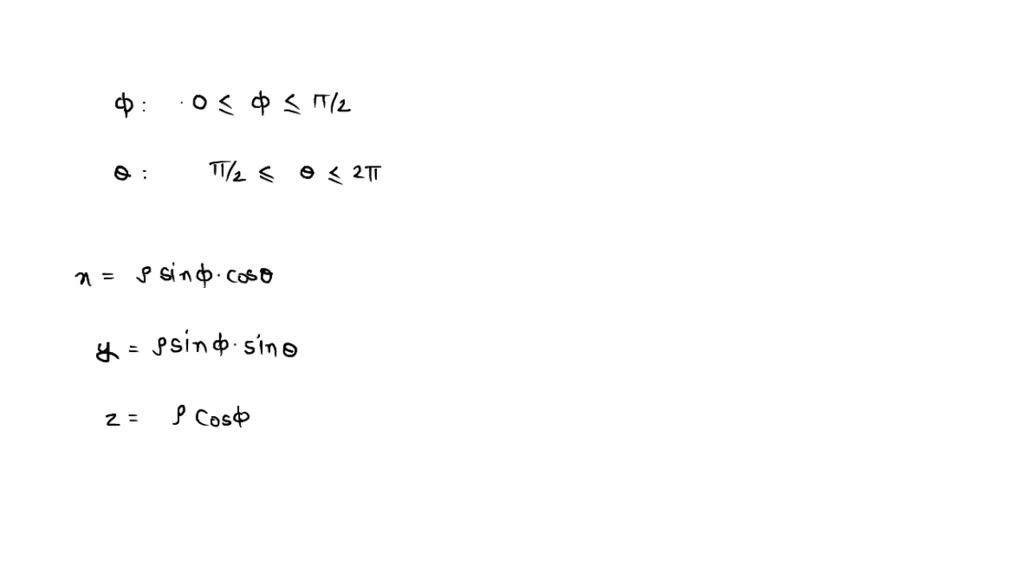 ϕ: 0 ≤ ϕ ≤ π/2
θ: π/2 ≤ θ ≤ 2π
x = ρ sinϕ · cosθ
y = ρ sinϕ · sinθ
z = ρ cosϕ